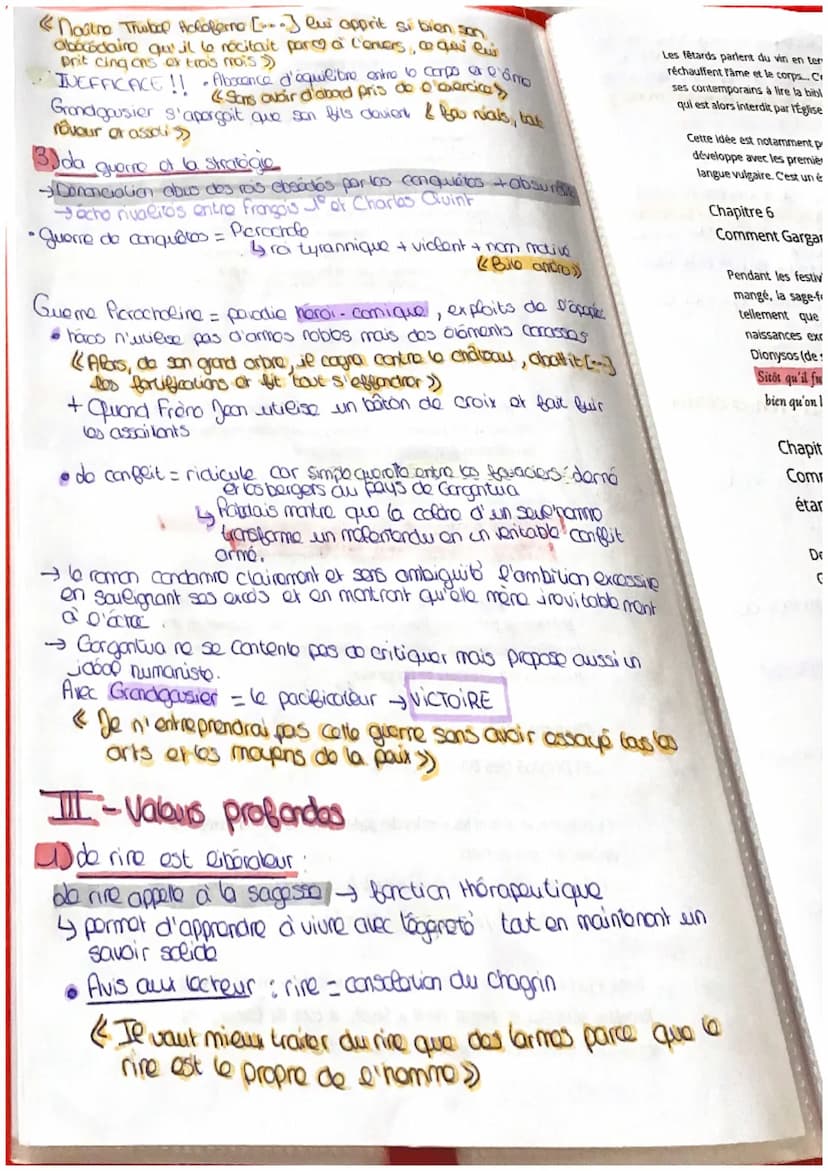 « Maître Thubal Holoferne [...] lui apprit si bien son
abécédaire qu'il le récitait par ♡ à l'envers, ce qui lui
prit cinq ans et trois mois »
INEFFICACE !! • Absence d'équilibre entre le corps et l'âme
« Sans avoir d'abord pris de l'exercice »
Grandgousier s'aperçoit que son fils devient « fou niais, tout
rêveur et assoti »
3) La guerre et la stratégie
→ Dénonciation abus des rois obsédés par les conquêtes + absurdité
→ écho rivalités entre François Ier et Charles Quint
• Guerre de conquêtes = Picrochole
↳ roi tyrannique + violent + nom motivé
« Bile amère »
Guerre Picrocholine = parodie héroï-comique, exploits de l'épopée
• héros n'utilise pas d'armes nobles mais des éléments cocasses
« Alors, de son grand arbre, il cogna contre le château, abattit [...]
les fortifications et fit tout s'effondrer »
+ Quand Frère Jean utilise un bâton de croix et fait fuir
les assaillants
• Le conflit = ridicule car simple querelle entre les fouaciers de Lerné
et les bergers du pays de Gargantua
↳ Rabelais montre que la colère d'un seul homme
transforme un malentendu en un véritable conflit
armé.
→ le roman condamne clairement et sans ambiguité l'ambition excessive
en soulignant ses excès et en montrant qu'elle mène inévitablement
à l'échec.
→ Gargantua ne se contente pas de critiquer mais propose aussi un
idéal humaniste.
Avec Grandgousier = le pacificateur → VICTOIRE
« Je n'entreprendrai pas cette guerre sans avoir essayé tous les
arts et les moyens de la paix »
III - Valeurs profondes
1) Le rire est libérateur :
Le rire appelle à la sagesse → fonction thérapeutique
↳ permet d'apprendre à vivre avec légèreté tout en maintenant un
savoir solide
• Avis au lecteur : rire = consolation du chagrin
« Il vaut mieux traiter du rire que des larmes parce que le
rire est le propre de l'homme »
Les fêtards parlent du vin en ter
réchauffent l'âme et le corps... C
ses contemporains à lire la bibl
qui est alors interdit par l'Église
Cette idée est notamment p
développe avec les premièr
langue vulgaire. C'est un é
Chapitre 6
Comment Gargar
Pendant les festiv
mangé, la sage-f
tellement que
naissances ex
Dionysos (de
Sitôt qu'il fu
bien qu'on l
Chapit
Comm
étar
De